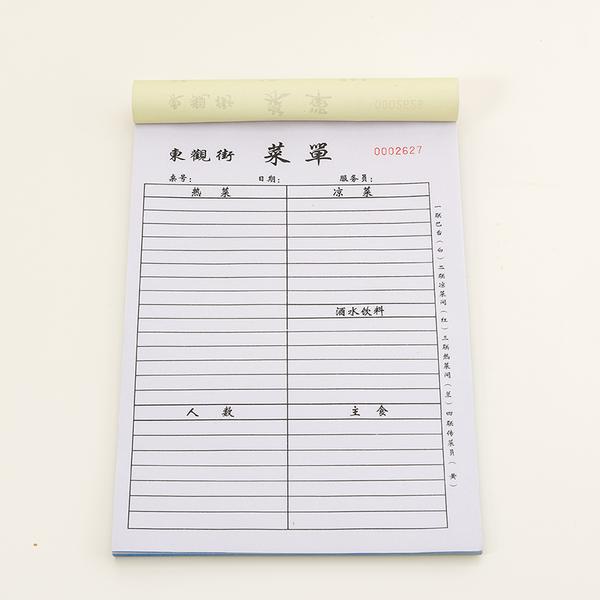 東觀街 菜單 0002627
桌号： 日期： 服务员：
热菜 凉菜
酒水饮料
人数 主食
一联巴台（白）二联凉菜间（红）三联热菜间（兰）四联传菜员（黄）